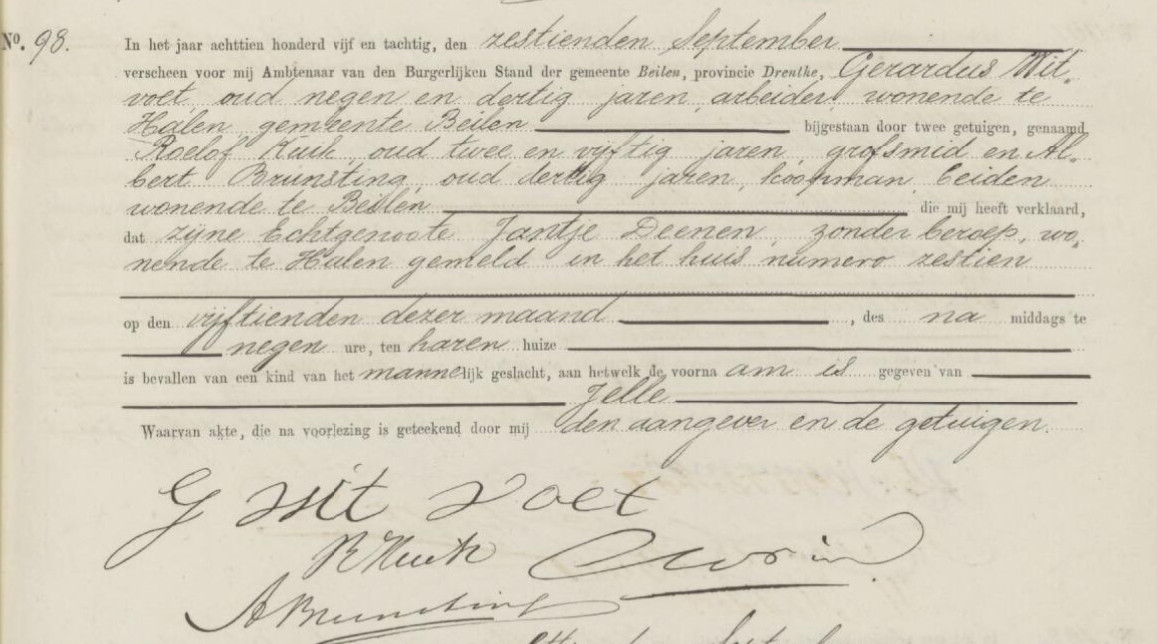 No. 98.
In het jaar achttien honderd vijf en tachtig, den zestienden September
verscheen voor mij Ambtenaar van den Burgerlijken Stand der gemeente Beilen, provincie Drenthe, Gerardus Wit-
voet oud negen en dertig jaren, arbeider, wonende te
Halen gemeente Beilen bijgestaan door twee getuigen, genaamd
Roelof Kuik, oud twee en vijftig jaren, grofsmid en Al-
bert Brunsting, oud dertig jaren, koopman beiden
wonende te Beilen die mij heeft verklaard,
dat zijne Echtgenoote Jantje Deenen, zonder beroep, wo-
nende te Halen gemeld in het huis numero zestien
op den vijftienden dezer maand, des na middags te
negen ure, ten haren huize
is bevallen van een kind van het mannelijk geslacht, aan hetwelk de voorna am is gegeven van
Jelle
Waarvan akte, die na voorlezing is geteekend door mij den aangever en de getuigen.
G Wit voet
R Kuik
A Brunsting